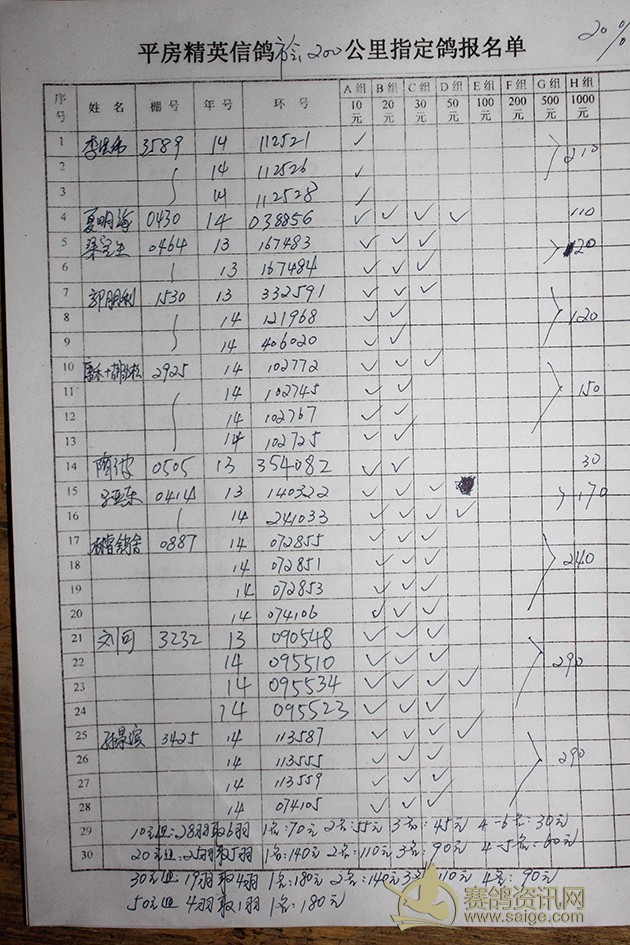 20%
平房精英信鸽 200公里指定鸽报名单
序号 姓名 棚号 年号 环号 A组10元 B组20元 C组30元 D组50元 E组100元 F组200元 G组500元 H组1000元
1 3589 14 112521 ✓
2 14 112526 ✓
3 14 112528 ✓
4 夏明海 0430 14 038856 ✓ ✓ ✓ ✓ 110
5 0464 13 167483 ✓ ✓ ✓ 120
6 13 167484 ✓ ✓ ✓
7 郭朋利 1530 13 332591 ✓ ✓ ✓
8 14 121968 ✓ ✓ 120
9 14 406020 ✓ ✓
10 2925 14 102772 ✓ ✓ ✓
11 14 102745 ✓ ✓ 150
12 14 102767 ✓ ✓
13 14 102725 ✓ ✓
14 0505 13 354082 ✓ ✓ 30
15 0414 13 140322 ✓ ✓ ✓ 170
16 14 241033 ✓ ✓ ✓ ✓
17 0887 14 072855 ✓ ✓ ✓
18 14 072851 ✓ ✓ ✓ 240
19 14 072853 ✓ ✓ ✓
20 14 074106 ✓ ✓ ✓
21 刘可 3232 13 090548 ✓ ✓ ✓
22 14 095510 ✓ ✓ ✓ 290
23 14 095534 ✓ ✓ ✓ ✓
24 14 095523 ✓ ✓ ✓
25 孙景滨 3425 14 113587 ✓ ✓ ✓ ✓
26 14 113555 ✓ ✓ ✓ 290
27 14 113559 ✓ ✓ ✓
28 14 074105 ✓ ✓ ✓
29 10元组:28羽取6羽 1名:70元 2名:55元 3名:45元 4-6名:30元
30 20元组:25羽取5羽 1名:140元 2名:110元 3名:90元 4-5名:60元
30元组 19羽取4羽 1名:180元 2名:140元 3名 110元 4名:90元
50元组 4羽取1羽 1名:180元
赛鸽资讯网
www.saige.com